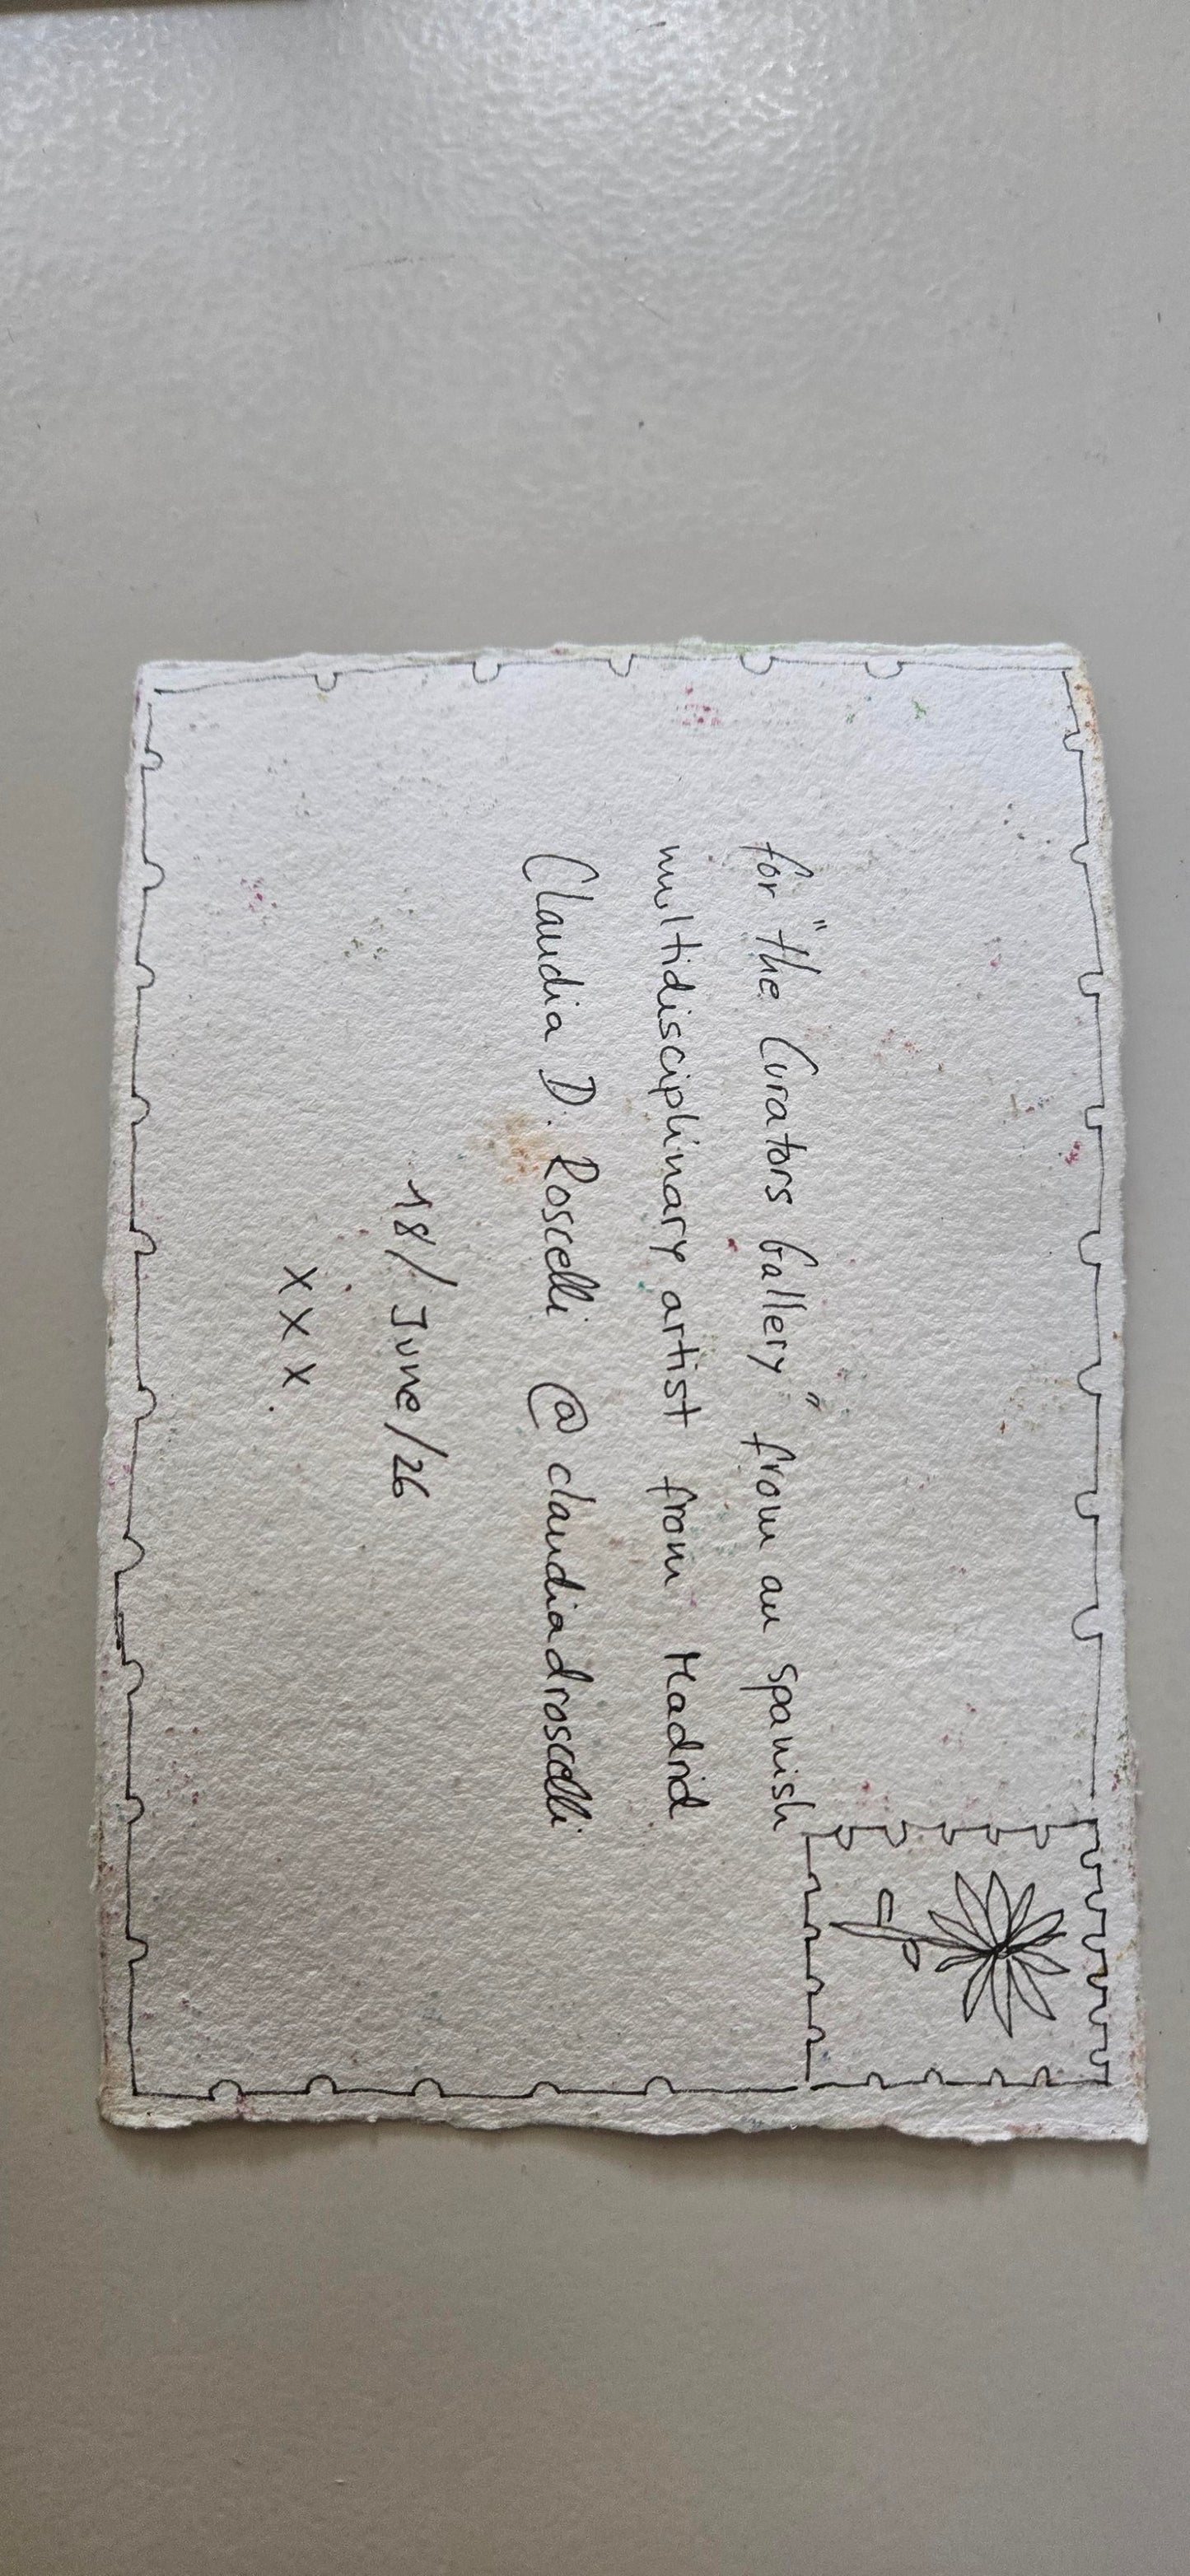 for "the Curators Gallery" from an spanish
multidisciplinary artist from Madrid
Claudia D. Roscelli @claudiadroscelli
18/June/26
x x x.